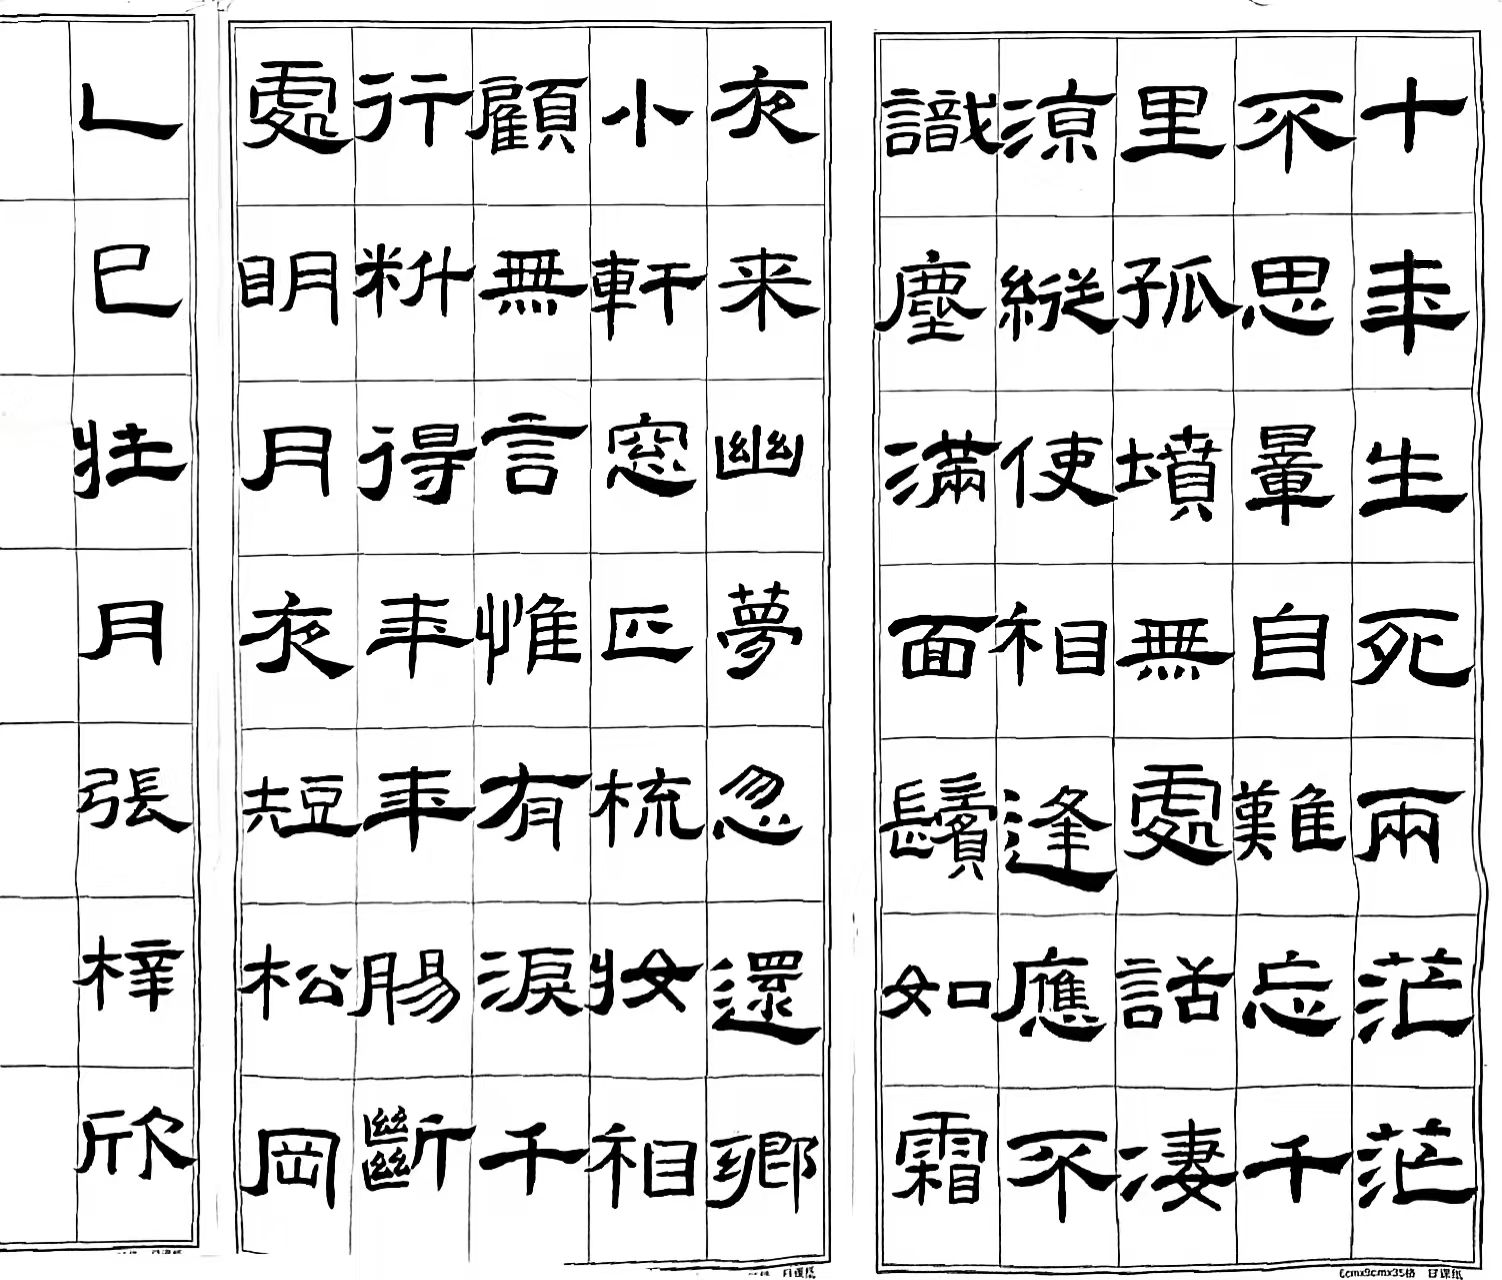 十年生死兩茫茫
不思量自難忘千
里孤墳無處話凄
涼縱使相逢應不
識塵滿面鬢如霜
夜来幽夢忽還鄉
小軒窓正梳妝相
顧無言惟有淚千
行料得年年腸斷
處明月夜短松岡
乙巳牡月張梓欣
6cmx9cmx35格 日课纸
日课纸
日课纸